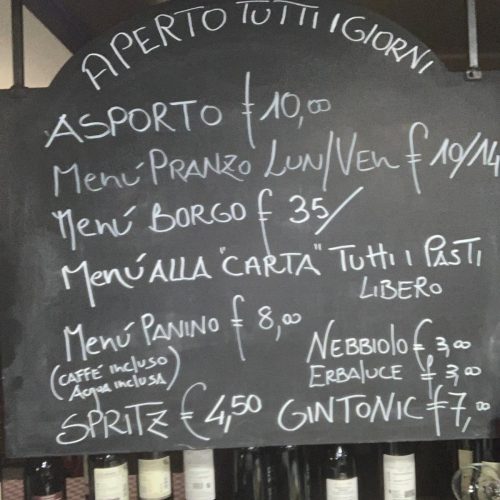 APERTO TUTTI I GIORNI
ASPORTO € 10,00
Menú PRANZO LUN/VEN € 10/14
Menú BORGO € 35/
Menú ALLA "CARTA" TUTTI I PASTI
LIBERO
Menú PANINO € 8,00
(CAFFÈ incluso
Acqua inclusa)
NEBBIOLO € 3,00
ERBALUCE € 3,00
SPRITZ = € 4,50
GINTONIC € 7,00